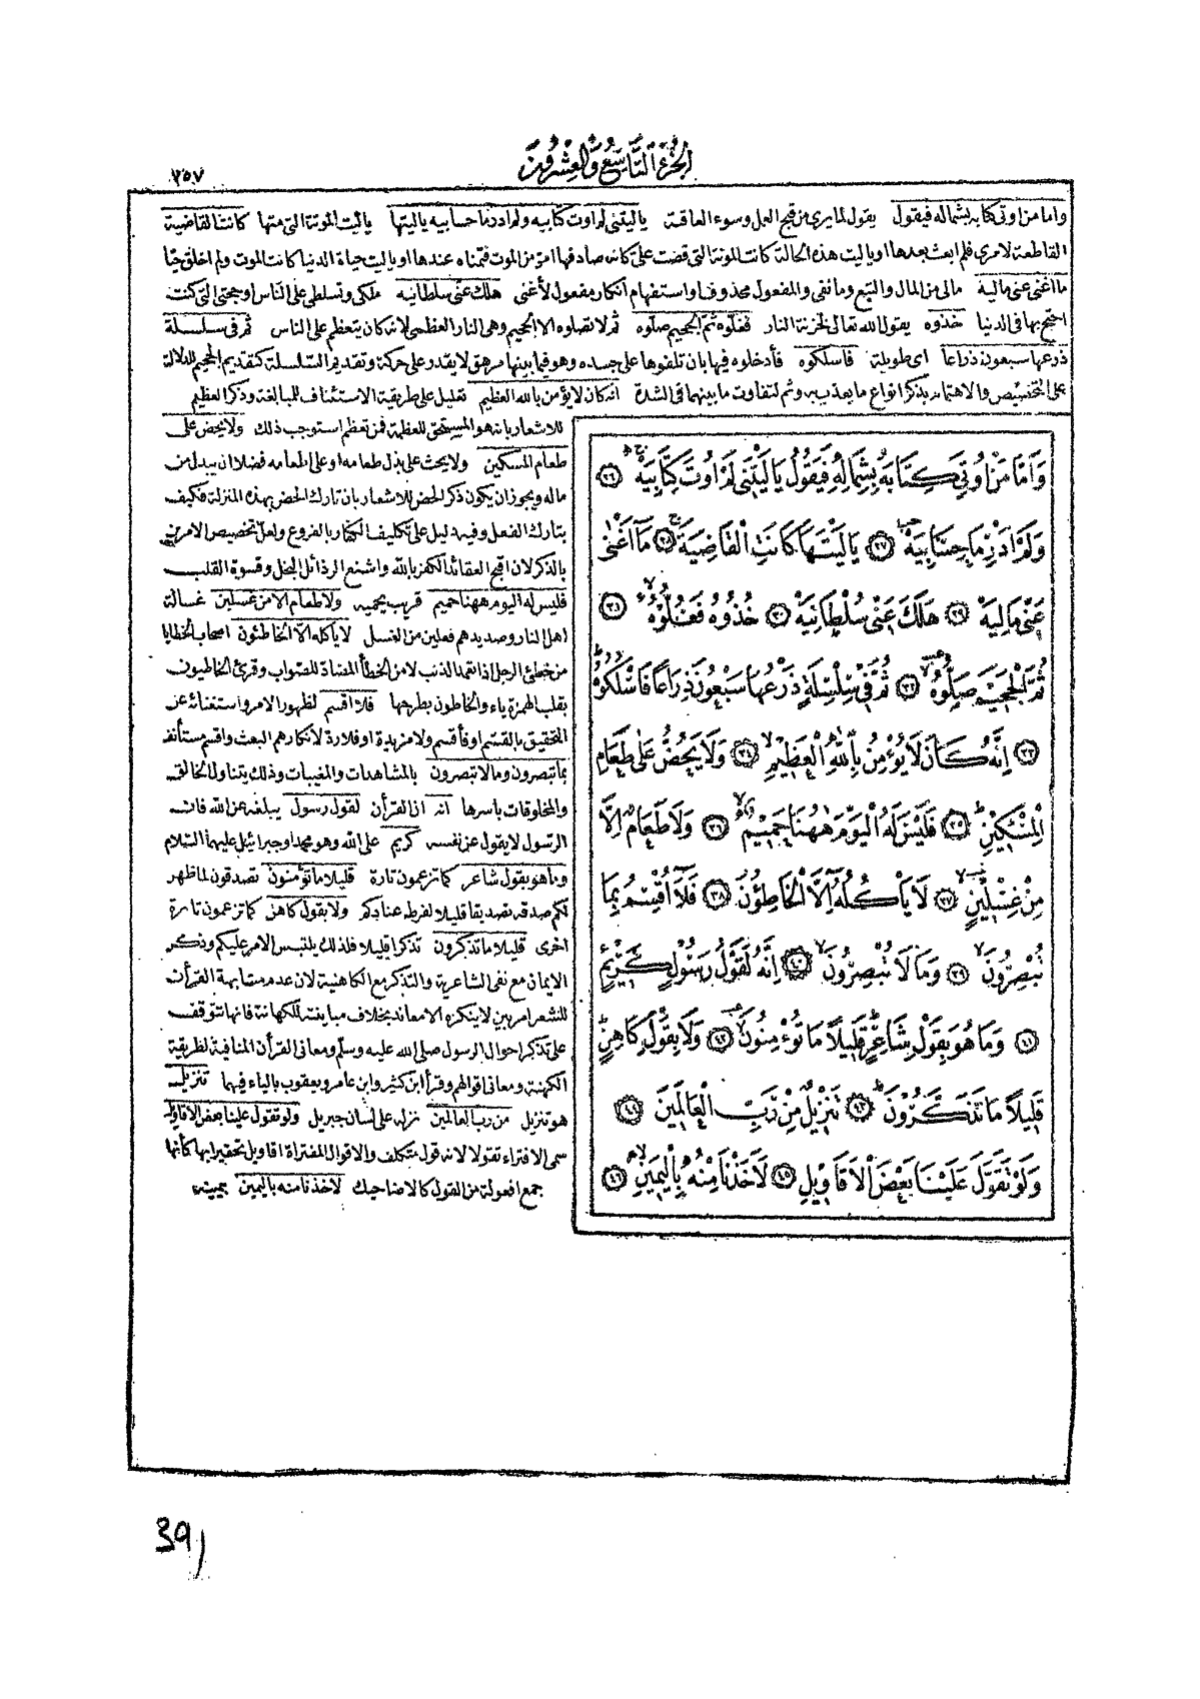 الجزء التاسع والعشرون
٢٥٧
واما من اوتى كتابه بشماله فيقول يقول لما يرى من قبح العمل وسوء العاقبة ياليتنى لم اوت كتابيه ولم ادر ما حسابيه ياليتها ياليت الموتة التى متها كانت القاضية
القاطعة لامرى فلم ابعث بعدها او ياليت هذه الحالة كانت الموتة التى قضت على كانه صادفها امر من الموت فتمناه عندها او ياليت حياة الدنيا كانت الموت ولم اخلق حيا
ما اغنى عنى ماليه مالى من المال والتبع وما نفى والمفعول محذوف او استفهام انكار مفعول لأغنى هلك عنى سلطانيه ملكى وتسلطى على الناس او حجتى التى كنت
احتج بها فى الدنيا خذوه يقول الله تعالى لخزنة النار فغلوه ثم الجحيم صلوه ثم لا تصلوه الا الجحيم وهى النار العظمى لانه كان يتعظم على الناس ثم فى سلسلة
ذرعها سبعون ذراعا اى طويلة فاسلكوه فأدخلوه فيها بان تلفوها على جسده وهو فيما بينها مرهق لا يقدر على حركة وتقديم السلسلة كتقديم الجحيم للدلالة
على التخصيص والاهتمام بذكر انواع ما يعذب به وثم لتفاوت ما بينهما فى الشدة انه كان لا يؤمن بالله العظيم تعليل على طريقة الاستئناف للمبالغة وذكر العظيم
للاشعار بانه هو المستحق للعظمة فمن تعظم استوجب ذلك ولا يحض على
طعام المسكين ولا يحث على بذل طعامه او على اطعامه فضلا ان يبذل من
ماله ويجوز ان يكون ذكر الحض للاشعار بان تارك الحض بهذه المنزلة فكيف
بتارك الفعل وفيه دليل على تكليف الكفار بالفروع ولعل تخصيص الامرين
بالذكر لان اقبح العقائد الكفر بالله واشنع الرذائل البخل وقسوة القلب
فليس له اليوم ههنا حميم قريب يحميه ولا طعام الا من غسلين غسالة
اهل النار وصديدهم فعلين من الغسل لا يأكله الا الخاطئون اصحاب الخطايا
من خطئ الرجل اذا تعمد الذنب لا من الخطأ المضاد للصواب وقرئ الخاطيون
بقلب الهمزة ياء والخاطون بطرحها فلا اقسم لظهور الامر واستغنائه عن
التحقيق بالقسم او فأقسم ولا مزيدة او فلا رد لانكارهم البعث واقسم مستأنف
بما تبصرون وما لا تبصرون بالمشاهدات والمغيبات وذلك يتناول الخالق
والمخلوقات باسرها انه ان القرأن لقول رسول يبلغه عن الله فان
الرسول لا يقول عن نفسه كريم على الله وهو محمد او جبرائيل عليهما السلام
وما هو بقول شاعر كما تزعمون تارة قليلا ما تؤمنون تصدقون لما ظهر
لكم صدقه تصديقا قليلا لفرط عنادكم ولا بقول كاهن كما تزعمون تارة
اخرى قليلا ما تذكرون تذكرا قليلا فلذلك يلتبس الامر عليكم وذكر
الايمان مع نفى الشاعرية والتذكر مع الكاهنية لان عدم مشابهة القرأن
للشعر امر بين لا ينكره الا معاند بخلاف مباينته للكهانة فانها تتوقف
على تذكر احوال الرسول صلى الله عليه وسلم ومعانى القرأن المنافية لطريقة
الكهنة ومعانى اقوالهم وقرأ ابن كثير وابن عامر ويعقوب بالياء فيهما تنزيل
هو تنزيل من رب العالمين نزله على لسان جبريل ولو تقول علينا بعض الاقاويل
سمى الافتراء تقولا لانه قول متكلف والاقوال المفتراة اقاويل تحقيرا بها كأنها
جمع افعولة من القول كالاضاحيك لاخذنا منه باليمين بيمينه
وَاَمَّا مَنْ اُوتِيَ كِتَابَهُ بِشِمَالِهِ فَيَقُولُ يَا لَيْتَنِي لَمْ اُوتَ كِتَابِيَهْ ٢٦
وَلَمْ اَدْرِ مَا حِسَابِيَهْ ٢٧ يَا لَيْتَهَا كَانَتِ الْقَاضِيَةَ ٢٨ مَا اَغْنٰى
عَنِّي مَالِيَهْ ٢٩ هَلَكَ عَنِّي سُلْطَانِيَهْ ٣٠ خُذُوهُ فَغُلُّوهُ ٣١
ثُمَّ الْجَحِيمَ صَلُّوهُ ٣٢ ثُمَّ فِي سِلْسِلَةٍ ذَرْعُهَا سَبْعُونَ ذِرَاعًا فَاسْلُكُوهُ
٣٣ اِنَّهُ كَانَ لَا يُؤْمِنُ بِاللّٰهِ الْعَظِيمِ ٣٤ وَلَا يَحُضُّ عَلٰى طَعَامِ
الْمِسْكِينِ ٣٥ فَلَيْسَ لَهُ الْيَوْمَ هٰهُنَا حَمِيمٌ ٣٦ وَلَا طَعَامٌ اِلَّا
مِنْ غِسْلِينٍ ٣٧ لَا يَأْكُلُهُ اِلَّا الْخَاطِئُونَ ٣٨ فَلَا اُقْسِمُ بِمَا
تُبْصِرُونَ ٣٩ وَمَا لَا تُبْصِرُونَ ٤٠ اِنَّهُ لَقَوْلُ رَسُولٍ كَرِيمٍ
٤١ وَمَا هُوَ بِقَوْلِ شَاعِرٍ قَلِيلًا مَا تُؤْمِنُونَ ٤٢ وَلَا بِقَوْلِ كَاهِنٍ
قَلِيلًا مَا تَذَكَّرُونَ ٤٣ تَنْزِيلٌ مِنْ رَبِّ الْعَالَمِينَ ٤٤
وَلَوْ تَقَوَّلَ عَلَيْنَا بَعْضَ الْاَقَاوِيلِ ٤٥ لَاَخَذْنَا مِنْهُ بِالْيَمِينِ ٤٦
391